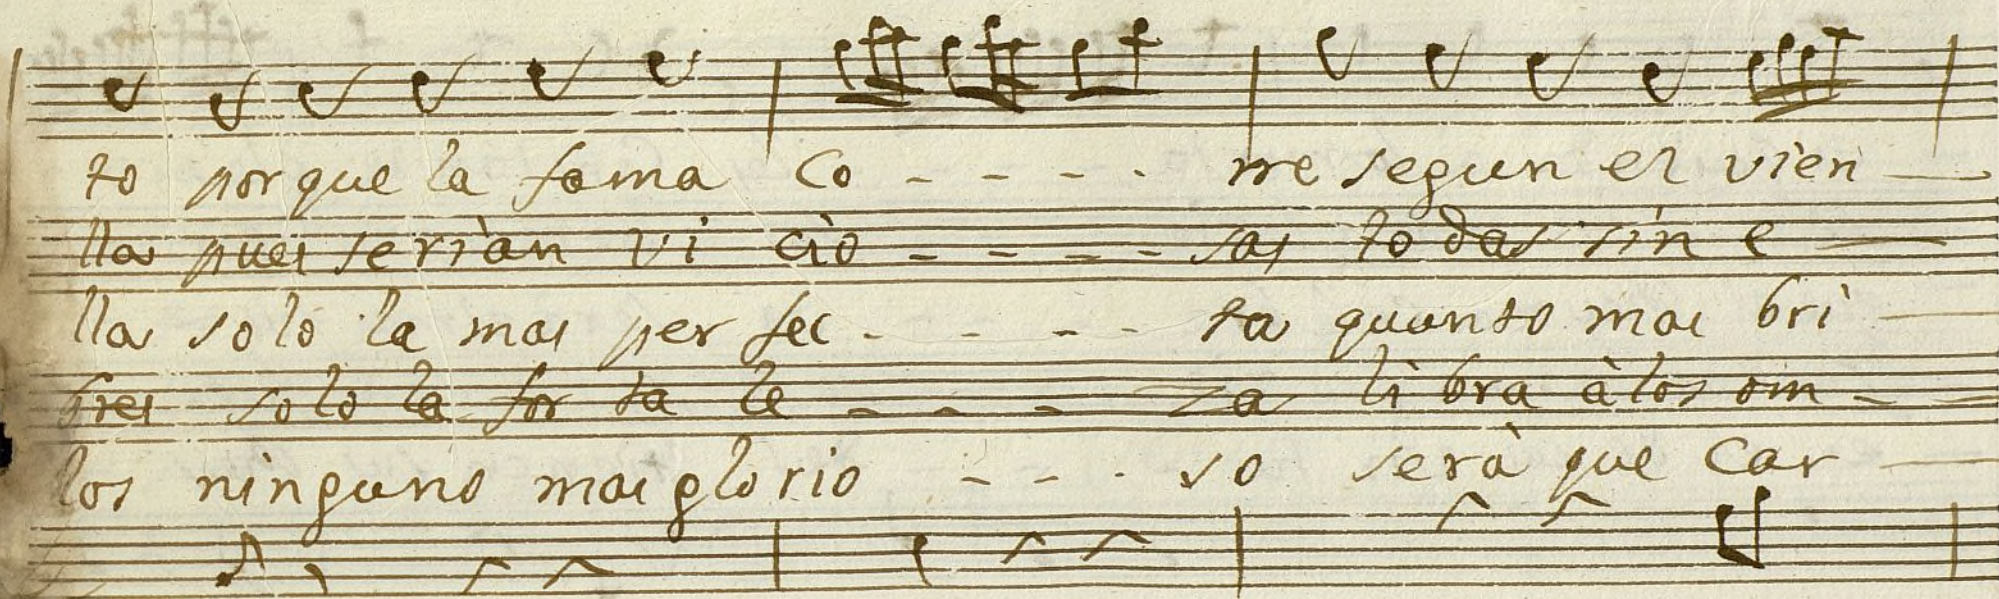 to porque la fama co - - - - rre segun el vien -
lla pues serian vi cio - - - - sas to das sin e -
lla solo la mas per fec - - - - ta quanto mas bri -
bres solo la for ta le - - - za li bra à los om -
los ninguno mas glorio - - - so serà que Car -